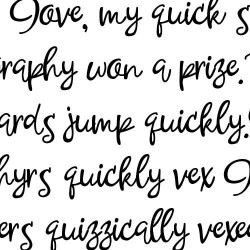 Jove, my quick s
raphy won a prize?
ards jump quickly!
hyrs quickly vex J
ers quizzically vexe